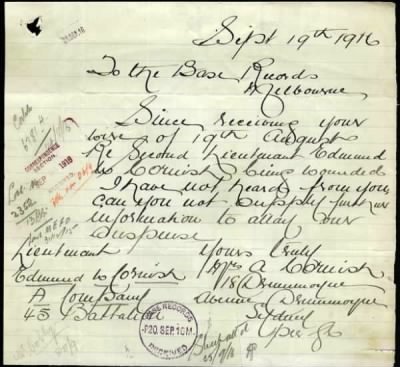 Sept 19th 1916
To the Base Records
Melbourne
Since receiving your
wire of 19th August
Re Second Lieutenant Edmund
W Cornish being wounded
I have not heard from you
can you not supply further
information to allay our
suspense
Lieutenant Yours truly
Edmund W Cornish Mrs A Cornish
A Company 18 Drummoyne
45 Battalion Avenue Drummoyne
Sydney
CORRESPONDENCE
SECTION
SEP 1916
BASE RECORDS
P20 SEP.16M
RECEIVED